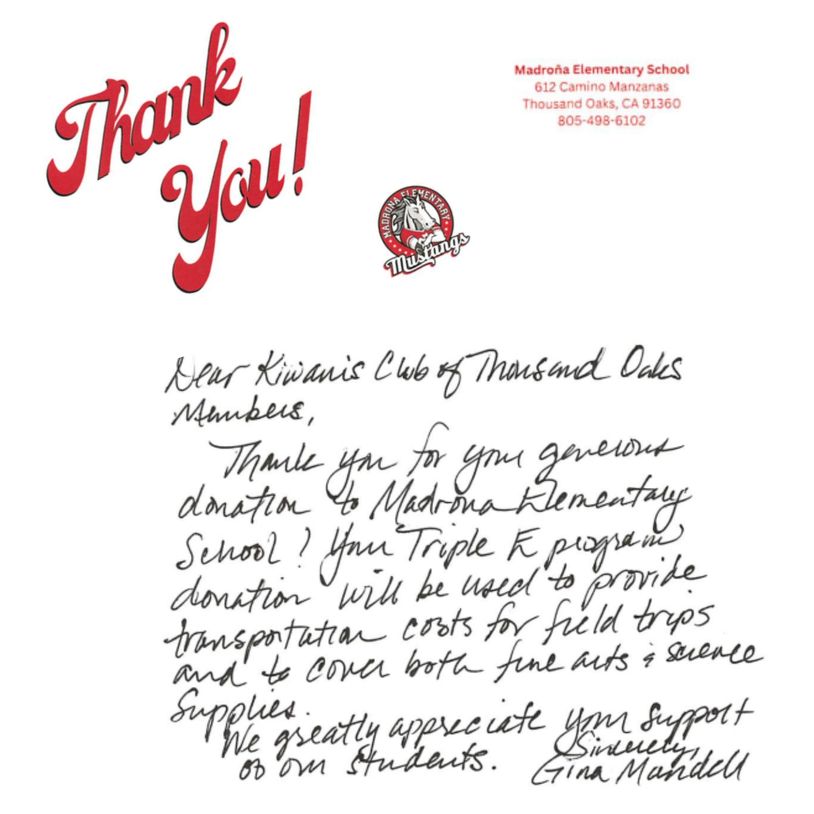 Thank
You!
Madroña Elementary School
612 Camino Manzanas
Thousand Oaks, CA 91360
805-498-6102
MADRONA ELEMENTARY
Mustangs
Dear Kiwanis Club of Thousand Oaks
Members,
Thank you for your generous
donation to Madrona Elementary
School! Your Triple E program
donation will be used to provide
transportation costs for field trips
and to cover both fine arts & science
supplies.
We greatly appreciate your support
of our students.
Sincerely,
Gina Mandell